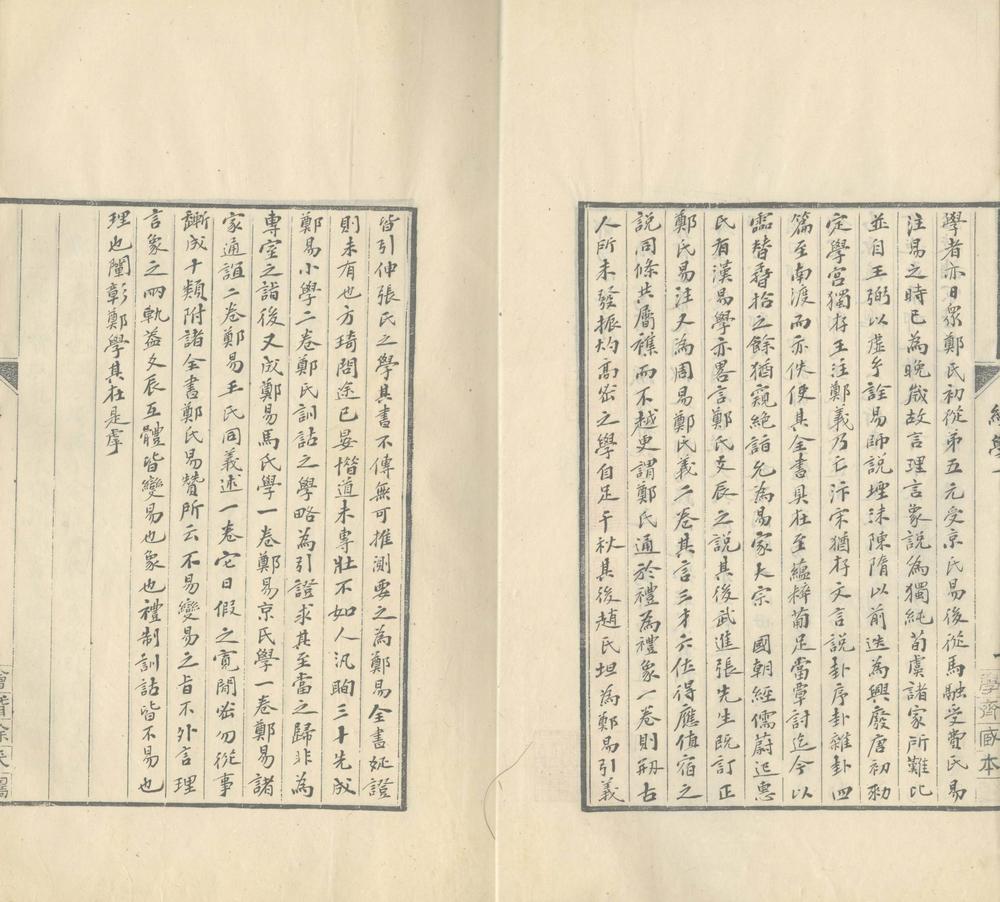 學者亦日衆鄭氏初從第五元受京氏易後從馬融受費氏易
注易之時已為晚歲故言理言象說為獨純荀虞諸家所難比
並自王弼以虛乎詮易師說堙沬陳隋以前迭為興廢唐初勑
定學宮獨存王注鄭義乃亡汴宋猶存文言說卦序卦雜卦四
篇至南渡而亦佚使其全書具在至蘊粹葡足當覃討迄今以
霝替掇拾之餘猶窺絕詣允為易家大宗 國朝經儒蔚起惠
氏有漢易學亦畧言鄭氏爻辰之說其後武進張先生既訂正
鄭氏易注又為周易鄭氏義二卷其言三才六位得應值宿之
說同條共屬襍而不越史謂鄭氏通於禮為禮象一卷則刱古
人所未發振灼高密之學自足千秋其後趙氏坦為鄭易引義
皆引伸張氏之學其書不傳無可推測要之為鄭易全書疏證
則未有也方琦問途已晏惛道未專壯不如人汎眴三十先成
鄭易小學二卷鄭氏訓詁之學略為引證求其至當之歸非為
專室之詣後又成鄭易馬氏學一卷鄭易京氏學一卷鄭易諸
家通誼二卷鄭易王氏同義述一卷它日假之寬閒密勿從事
斷成十類附諸全書鄭氏易贊所云不易變易之旨不外言理
言象之兩軌益爻辰互體皆變易也象也禮制訓詁皆不易也
理也闡彰鄭學其在是虖